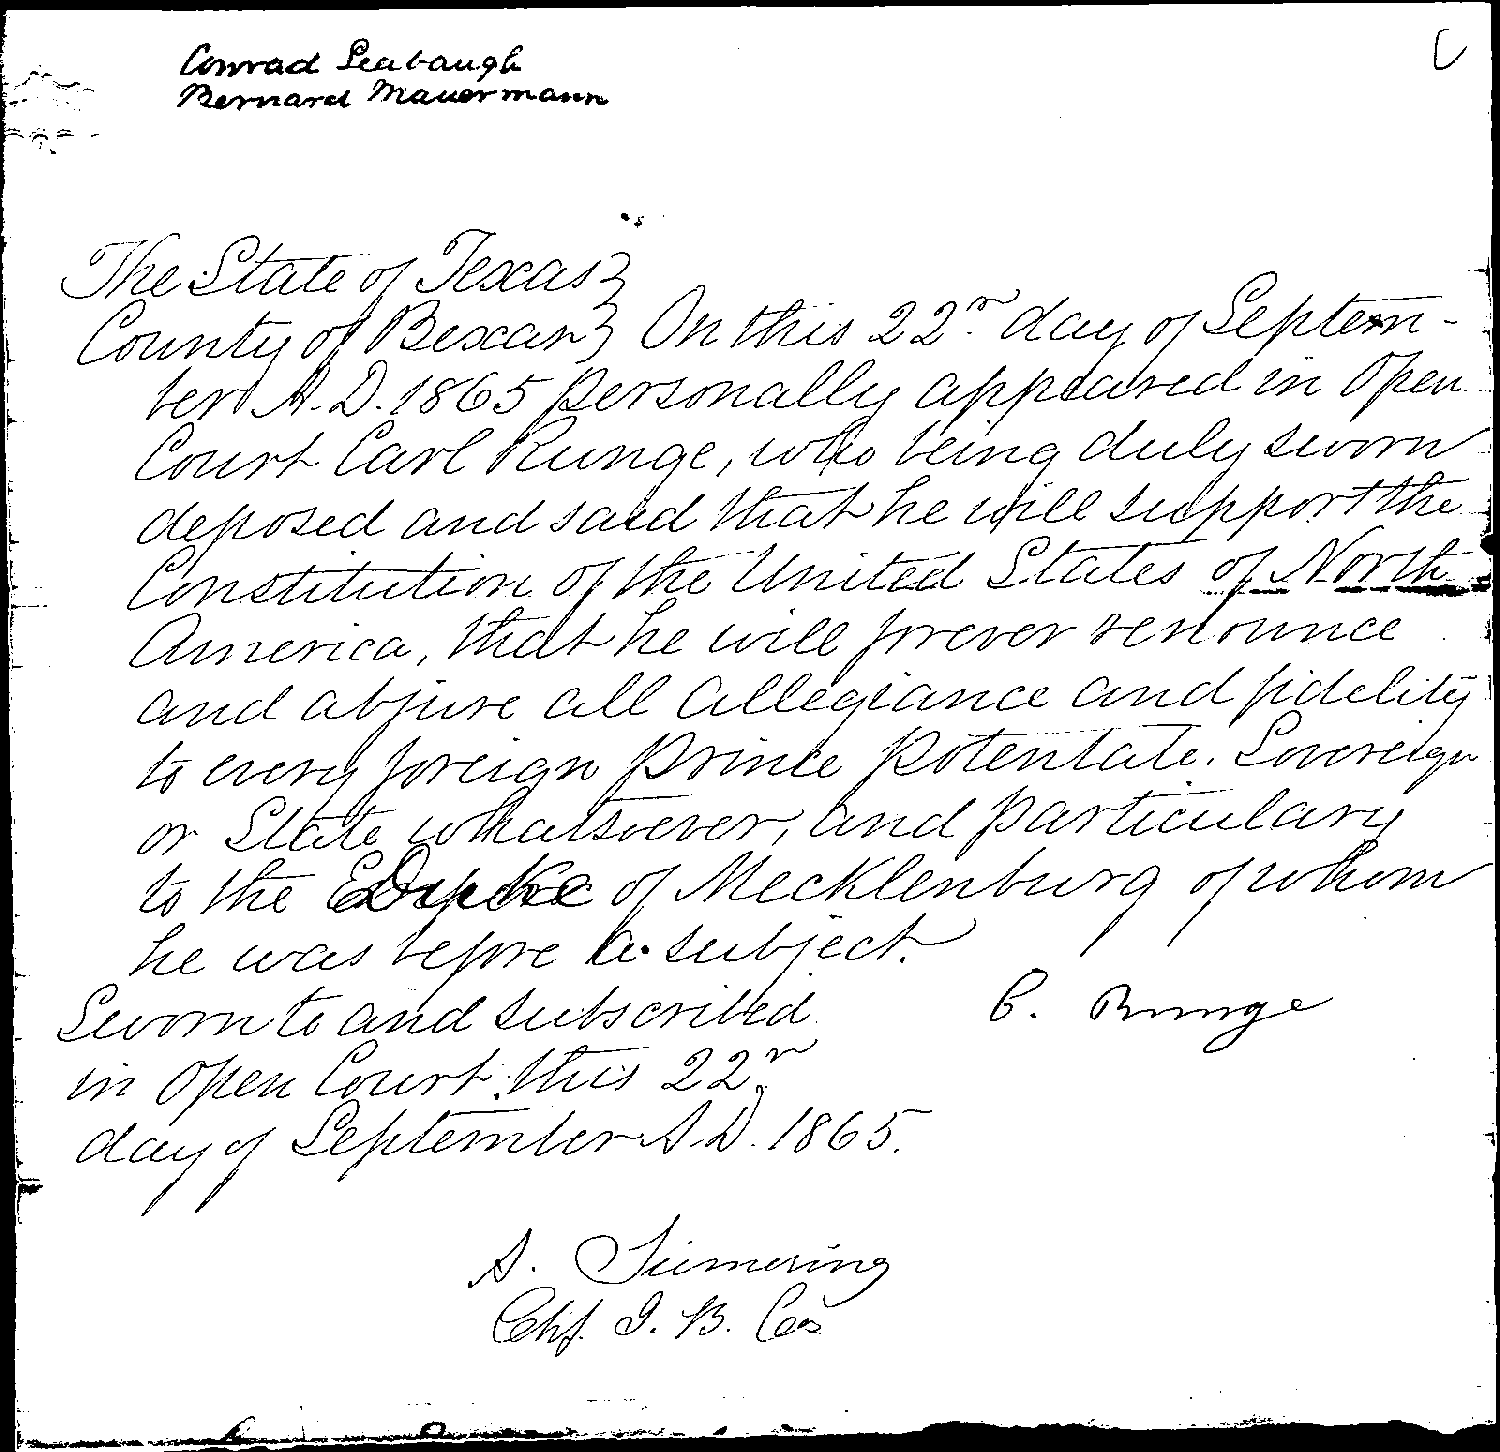 Conrad Seabaugh
Bernard Mauermann
The State of Texas }
County of Bexar } On this 22d day of Septem-
ber A. D. 1865 personally appeared in open
Court Carl Runge, who being duly sworn
deposed and said that he will support the
Constitution of the United States of North
America, that he will forever renounce
and abjure all allegiance and fidelity
to every foreign Prince Potentate. Sovereign
or State whatsoever, and particulary
to the Duke of Mecklenburg of whom
he was before a subject.
Sworn to and subscribed
C. Runge
in open Court this 22d
day of September A.D. 1865.
A. Siemering
Chf. J. B. Co